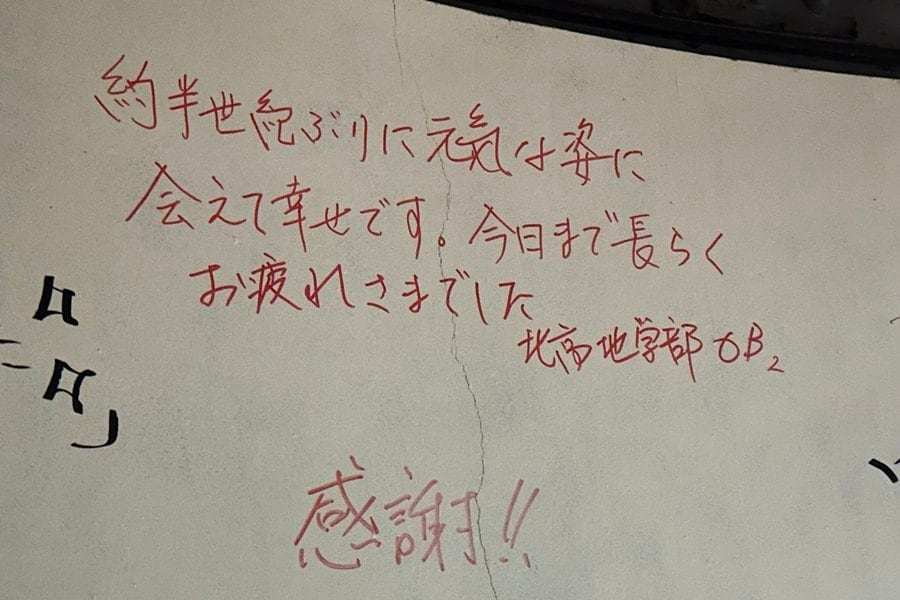 約半世紀ぶりに元気な姿に
会えて幸せです。今日まで長らく
お疲れさまでした
北高地学部OB
感謝!!